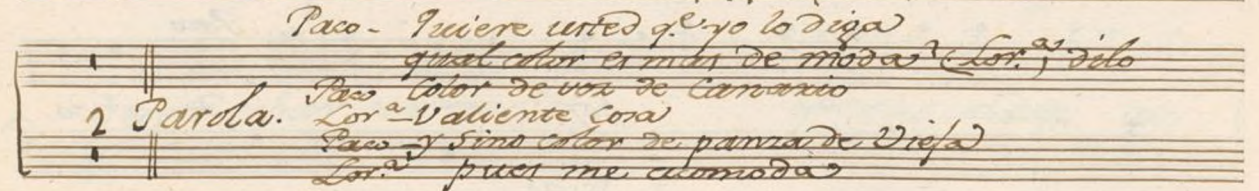 Paco - Quiere usted q.e yo lo diga
qual color es mas de moda? (Lor.a) dilo
Paco Color de voz de Canario
2 Parola. Lor.a - Valiente Cosa
Paco - y sino color de panza de Vieja
Lor.a pues me acomoda